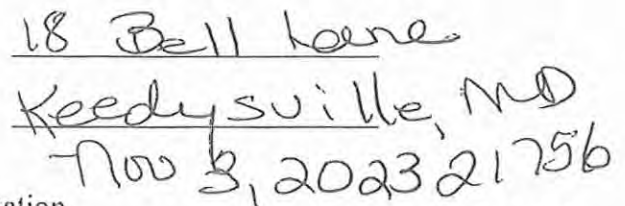 18 Bell Lane
Keedysville, MD
Nov 3, 2023 21756